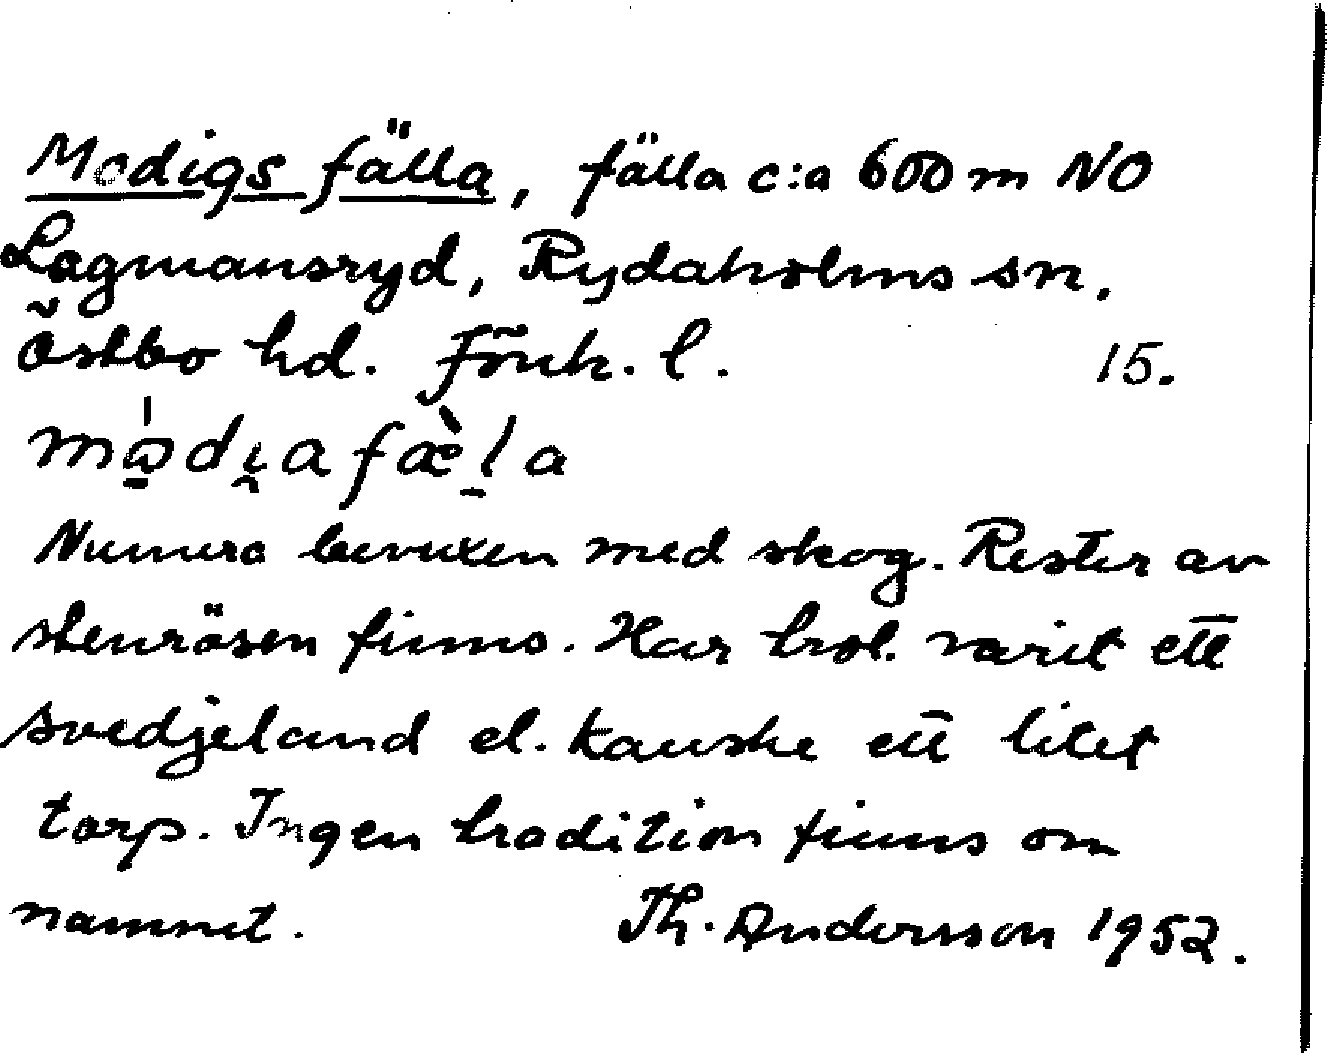 Modigs fälla, fälla c:a 600 m NO
Lagmansryd, Rydaholms sn.
Östbo hd. Jönk. l. 15.
Numera bevuxen med skog. Rester av
stenrösen finns. Har trol. varit ett
svedjeland el. kanske ett litet
torp. Ingen tradition finns om
namnet. Th. Andersson 1952.